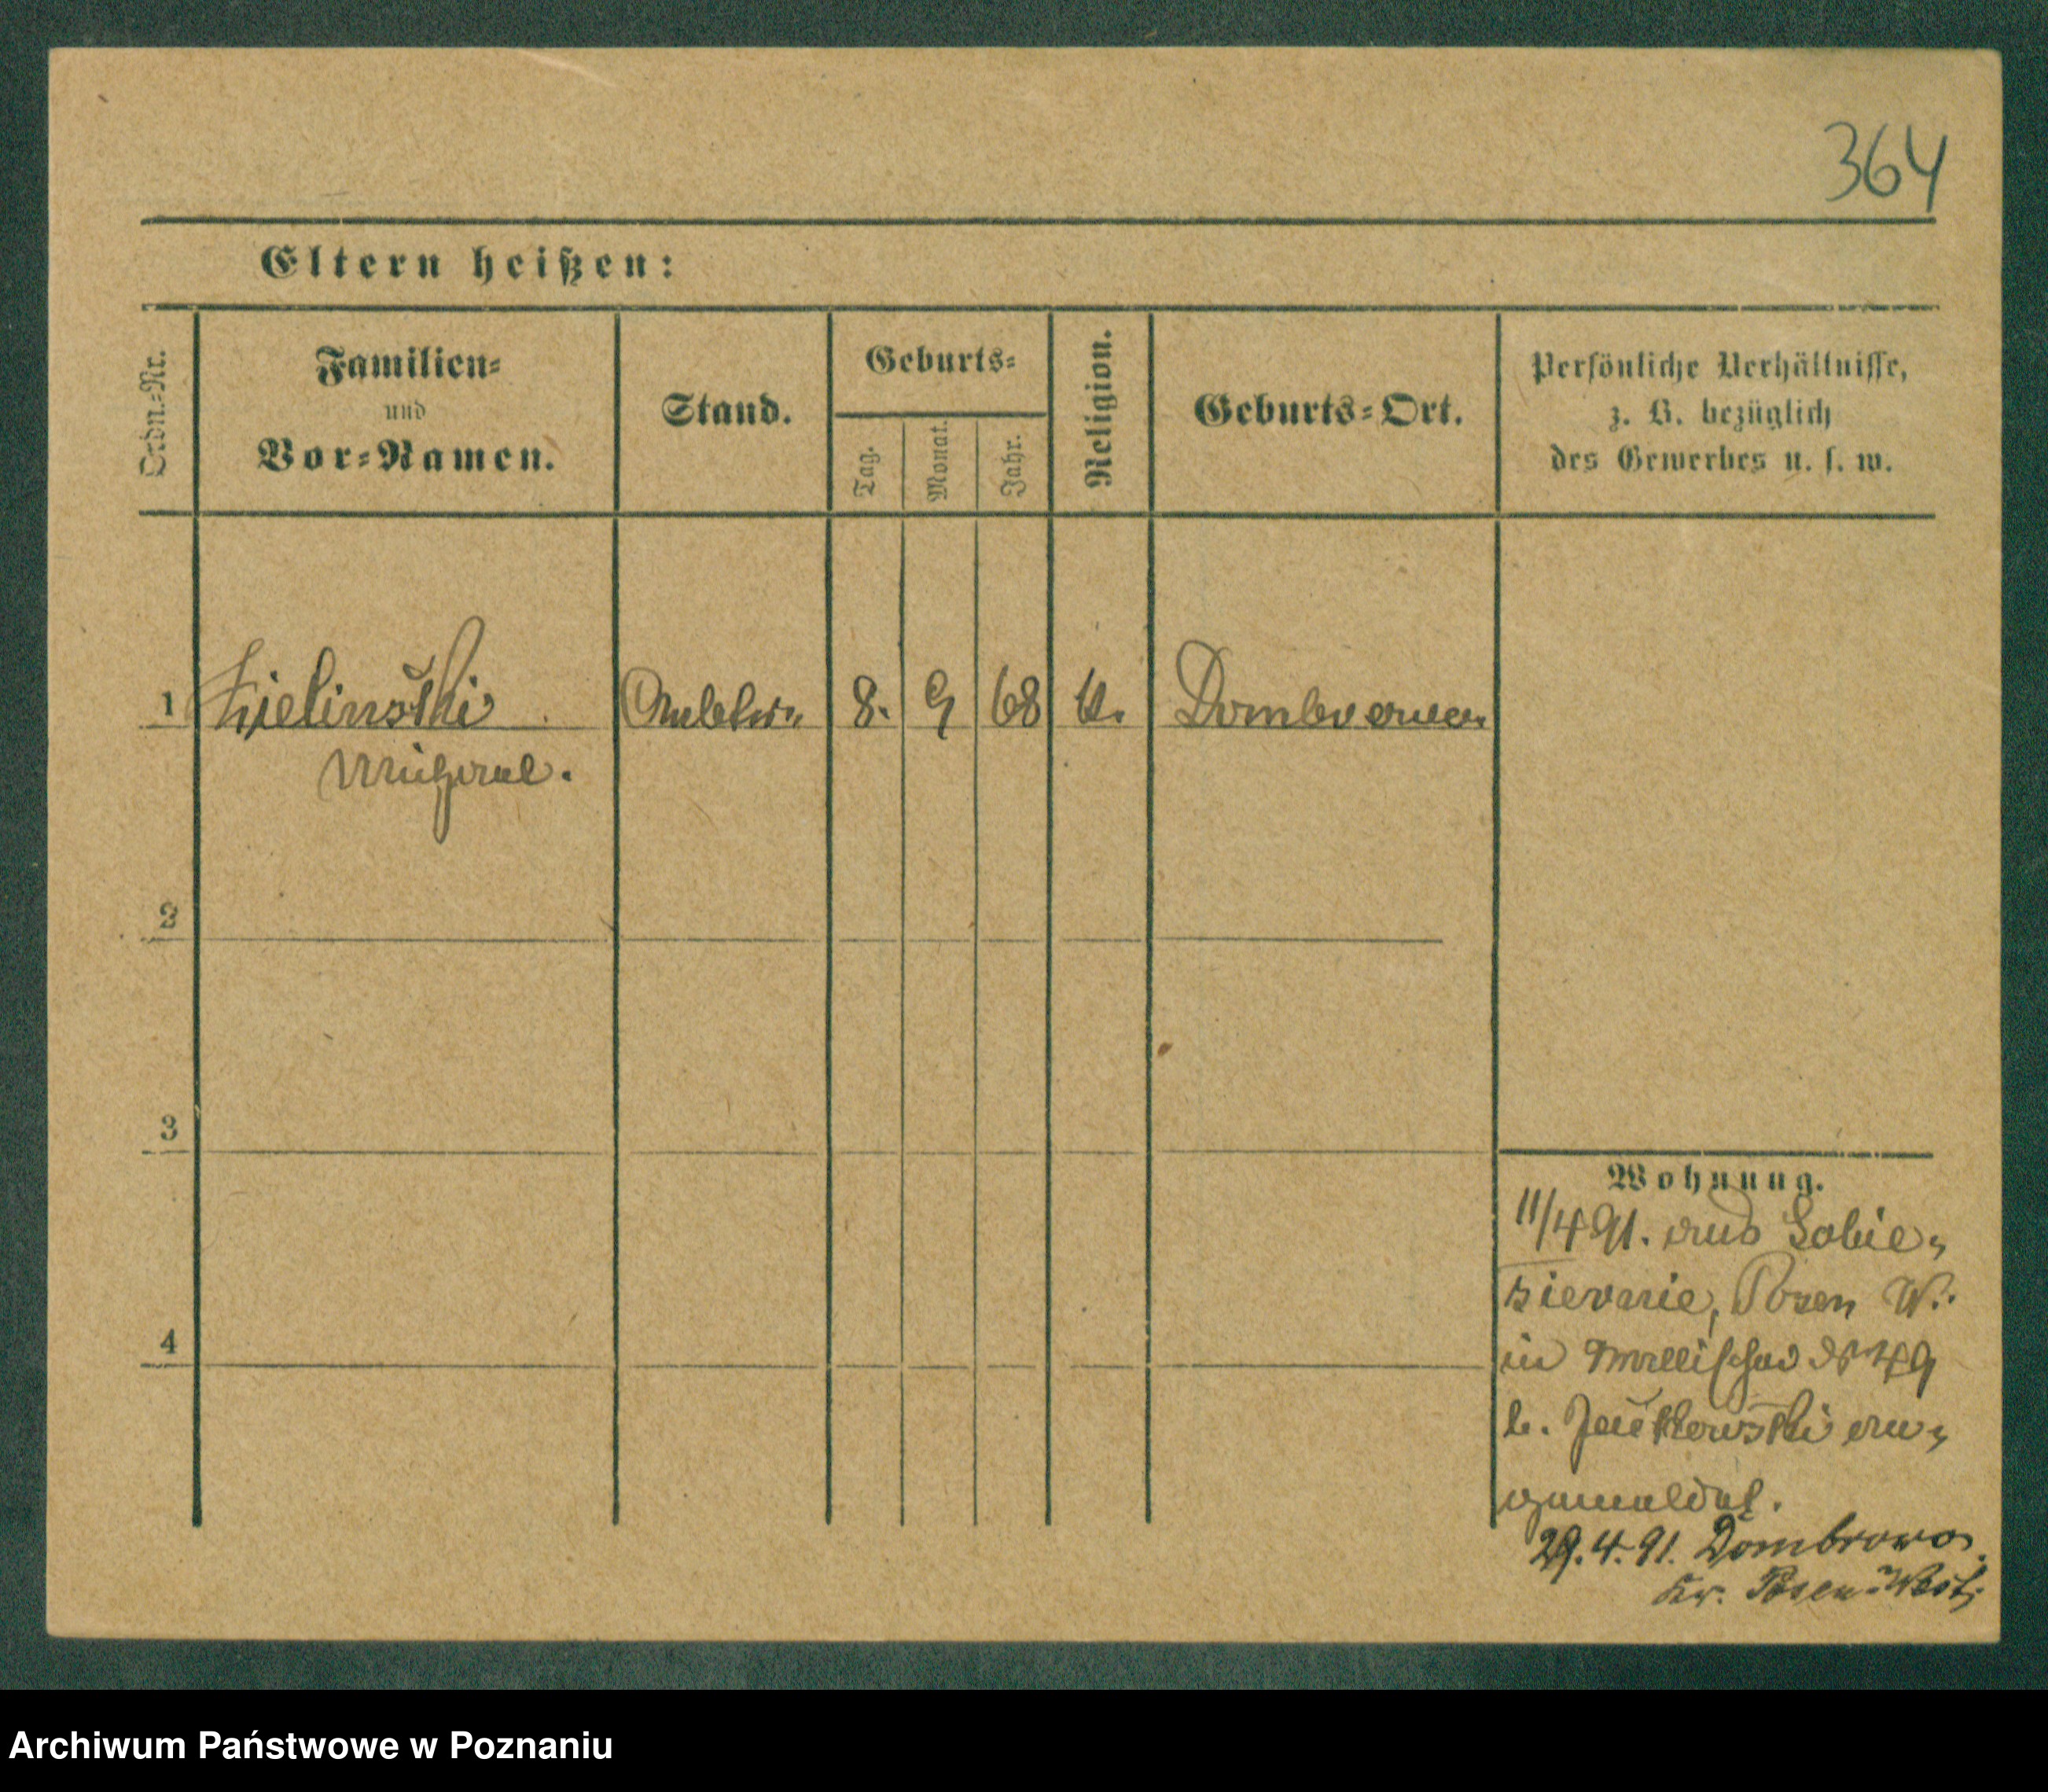 364
Eltern heißen:
Ordn.-Nr.
Familien-
und
Vor-Namen.
Stand.
Geburts-
Tag.
Monat.
Jahr.
Religion.
Geburts-Ort.
Persönliche Verhältnisse,
z. B. bezüglich
des Gewerbes u. s. w.
1 Zielinski 8. 9 68 k.
Michael.
2
3
4
Wohnung.
11/4 91. aus
Posen W.
in No 49
b.
angemeldet.
29.4.91. Dombrowo
Kr. Posen-West
Archiwum Państwowe w Poznaniu